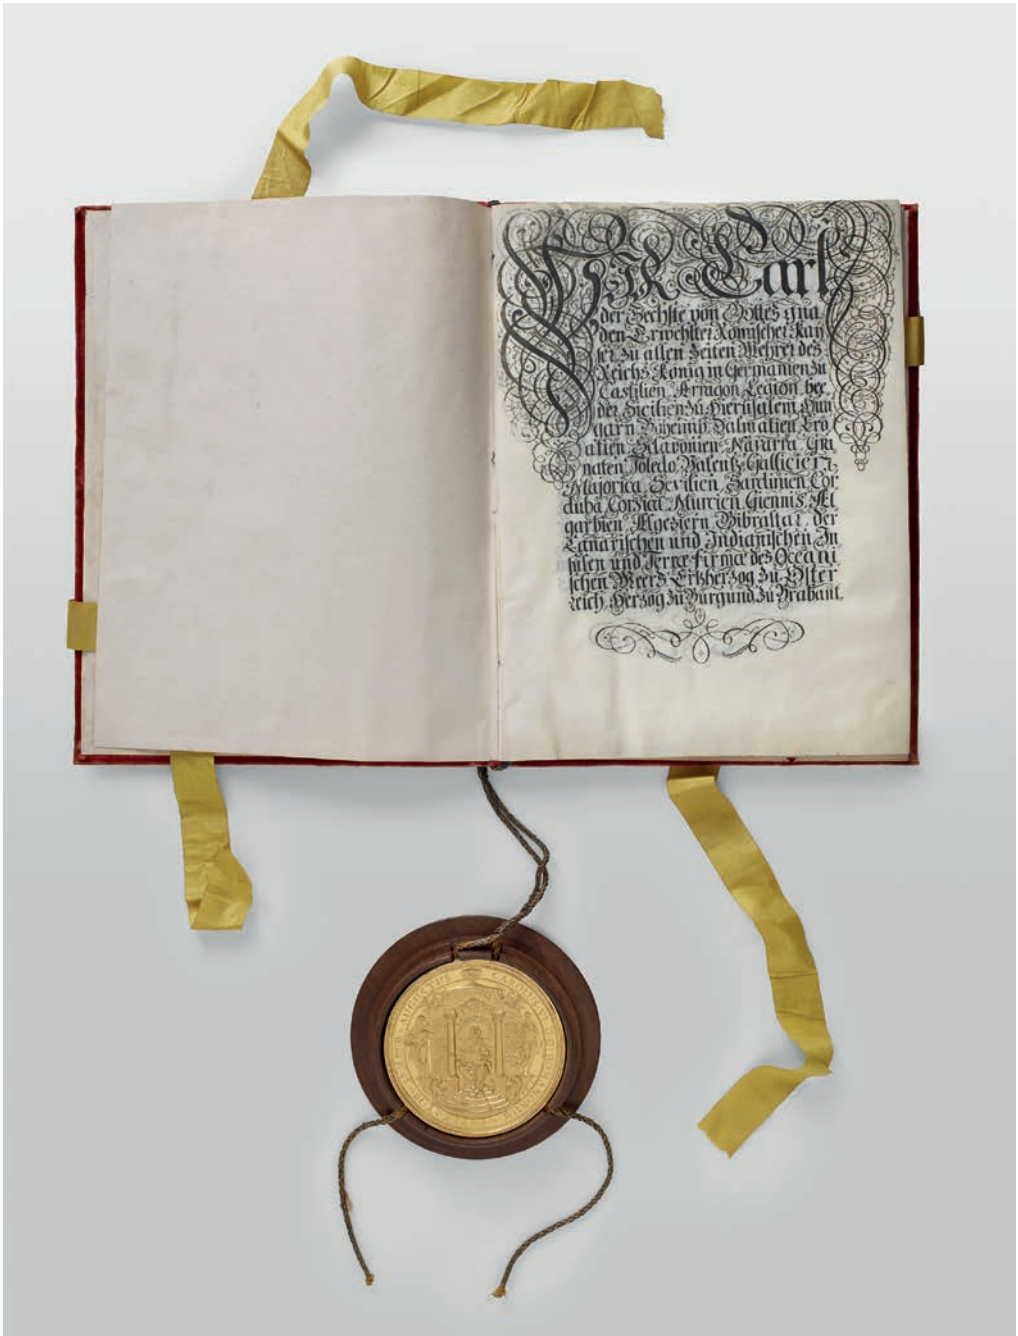 Wir Carl
der Sechste von Gottes gna
den Erwehlter Römischer Kay
ser Zu allen Zeiten Mehrer des
Reichs König in Germanien Zu
Castilien Arragon Legion bee
der Sicilien Zu Hierusalem Hun
garn Böheimb Dalmatien Cro
atien Sclavonien Navarra Gra
naten Toledo Valentz Gallicien,
Majorica Sevilien Sardinien Cor
duba Corsica Murcien Giennis Al
garbien Algeziern Gibraltar der
Canarischen und Indianischen In
sulen und Terræ firmæ des Oceani
schen Meers Ertzherzog Zu Oster
reich, Herzog Zu Burgund Zu Brabant,
AUGUSTUS CAROLUS VI